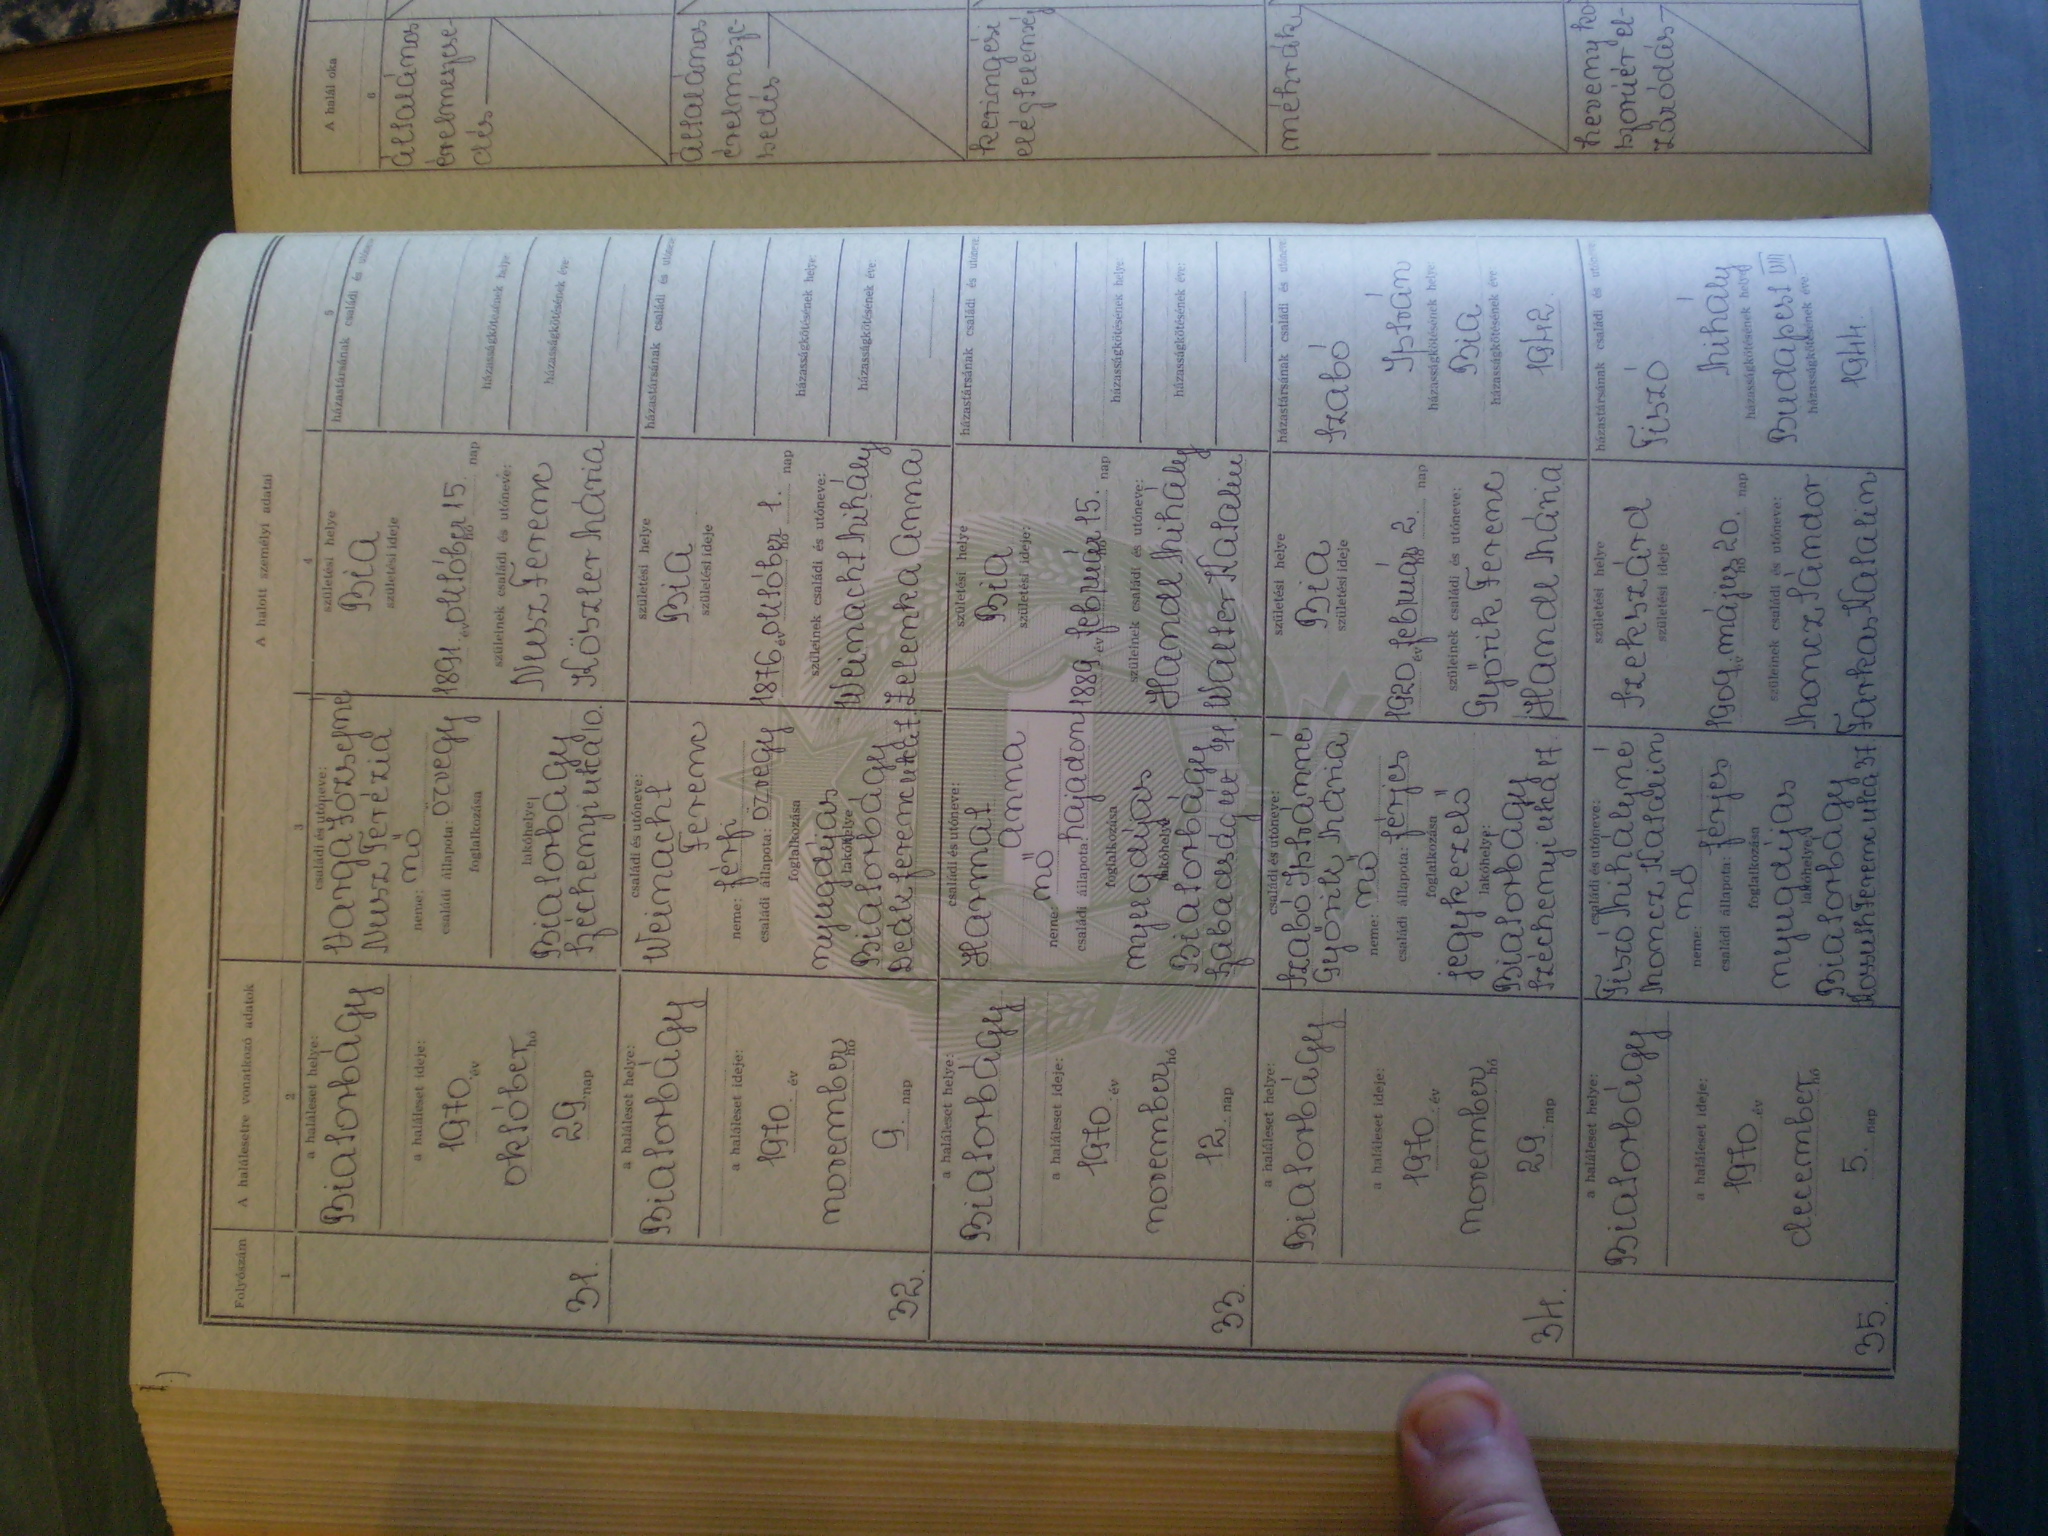 Folyószám
A halálesetre vonatkozó adatok
A halott személyi adatai
A halál oka
1
2
3
4
5
6
31.
a haláleset helye:
Biatorbágy
a haláleset ideje:
1970. év
október hó
29 nap
családi és utóneve:
Varga Józsefné
Nusz Terézia
neme: nő
családi állapota: özvegy
foglalkozása
lakóhelye
Biatorbágy
Széchenyi utca 10.
születési helye
Bia
születési ideje
1891. év október hó 15. nap
szüleinek családi és utóneve:
Nusz Ferenc
Köszler Mária
házastársának családi és utóneve
házasságkötésének helye
házasságkötésének éve
általános
érelmesze-
dés
32.
a haláleset helye:
Biatorbágy
a haláleset ideje:
1970. év
november hó
9. nap
családi és utóneve:
Weinacht
Ferenc
neme: férfi
családi állapota: özvegy
foglalkozása
nyugdíjas
lakóhelye
Biatorbágy
születési helye
Bia
születési ideje
1876. év október hó 1. nap
szüleinek családi és utóneve:
Weinacht Mihály
Zelenka Anna
házastársának családi és utóneve
házasságkötésének helye:
házasságkötésének éve:
általános
érelmesze-
sedés
33.
a haláleset helye:
Biatorbágy
a haláleset ideje:
1970. év
november hó
12. nap
családi és utóneve:
Harmat
Anna
neme: nő
családi állapota: hajadon
foglalkozása
nyugdíjas
lakóhelye
Biatorbágy
Szabadság út
születési helye
Bia
születési ideje:
1889. év február hó 15. nap
szüleinek családi és utóneve:
Handl Mihály
Walter Katalin
házastársának családi és utóneve
házasságkötésének helye
házasságkötésének éve:
keringési
elégtelenség
34.
a haláleset helye:
Biatorbágy
a haláleset ideje:
1970. év
november hó
29 nap
családi és utóneve:
Szabó Istvánné
Győrik Mária
neme: nő
családi állapota: férjes
foglalkozása
jegykezelő
lakóhelye:
Biatorbágy
Széchenyi utca 17.
születési helye
Bia
születési ideje
1920 év február hó 2. nap
szüleinek családi és utóneve:
Győrik Ferenc
Handl Mária
házastársának családi és utóneve
Szabó
István
házasságkötésének helye
Bia
házasságkötésének éve
1942.
méhrák
35.
a haláleset helye:
Biatorbágy
a haláleset ideje:
1970. év
december hó
5. nap
családi és utóneve:
Tiszó Mihályné
Moncz Katalin
neme: nő
családi állapota: férjes
foglalkozása
nyugdíjas
lakóhelye
Biatorbágy
Kossuth Ferenc utca 37
születési helye
Szekszárd
születési ideje
1909. év május hó 20. nap
szüleinek családi és utóneve:
Moncz Sándor
Farkas Katalin
házastársának családi és utóneve
Tiszó
Mihály
házasságkötésének helye
Budapest VIII
házasságkötésének éve
1944.
heveny ko
szorúér el-
záródás